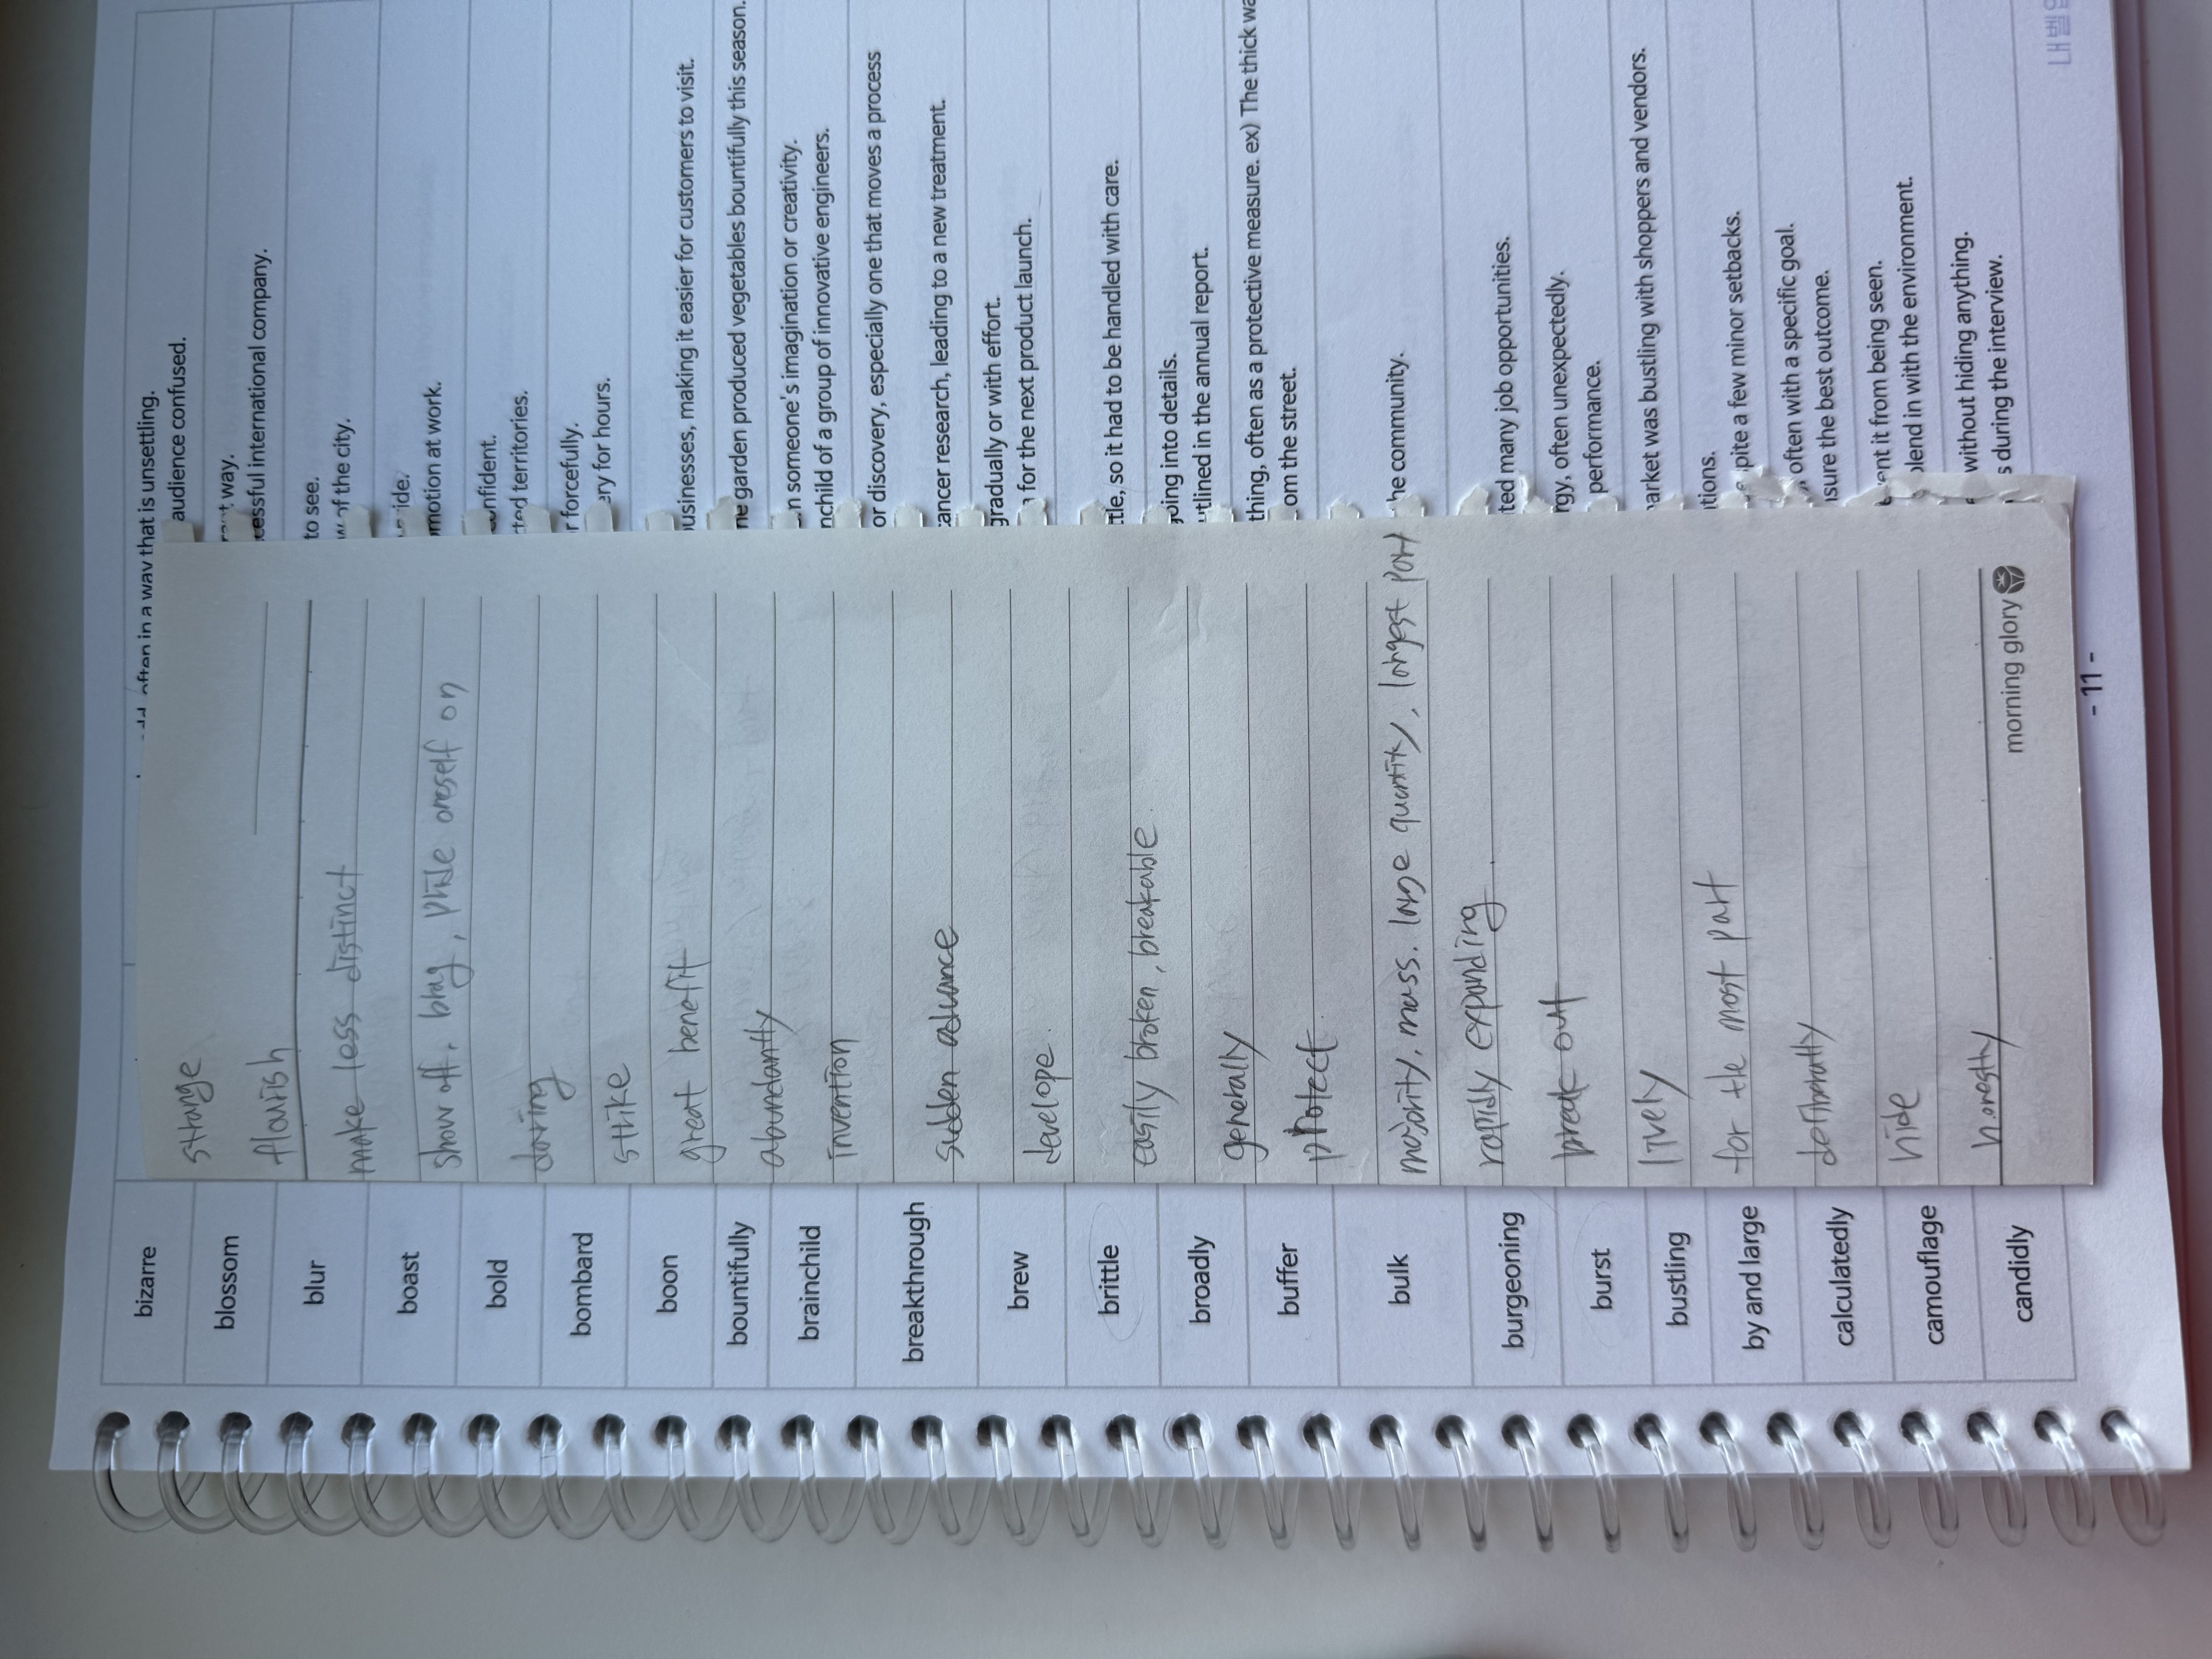 bizarre
strange
often in a way that is unsettling.
audience confused.
blossom
flourish
way.
essful international company.
blur
make less distinct
to see.
of the city.
boast
show off, brag, pride oneself on
ride.
motion at work.
bold
daring
nfident.
ted territories.
bombard
strike
forcefully.
ery for hours.
boon
great benefit
usinesses, making it easier for customers to visit.
bountifully
abundantly
garden produced vegetables bountifully this season.
brainchild
invention
n someone's imagination or creativity.
nchild of a group of innovative engineers.
breakthrough
sudden advance
or discovery, especially one that moves a process
ancer research, leading to a new treatment.
brew
develope.
gradually or with effort.
for the next product launch.
brittle
easily broken, breakable.
tle, so it had to be handled with care.
broadly
generally
oing into details.
utlined in the annual report.
buffer
protect.
thing, often as a protective measure. ex) The thick wa
om the street.
bulk
majority, mass. large quantity, longest part
he community.
burgeoning
rapidly expanding.
ted many job opportunities.
burst
break out
rgy, often unexpectedly.
performance.
bustling
lively
arket was bustling with shoppers and vendors.
by and large
for the most part
tions.
pite a few minor setbacks.
calculatedly
often with a specific goal.
sure the best outcome.
camouflage
hide
ent it from being seen.
lend in with the environment.
candidly
honestly
without hiding anything.
s during the interview.
morning glory
- 11 -